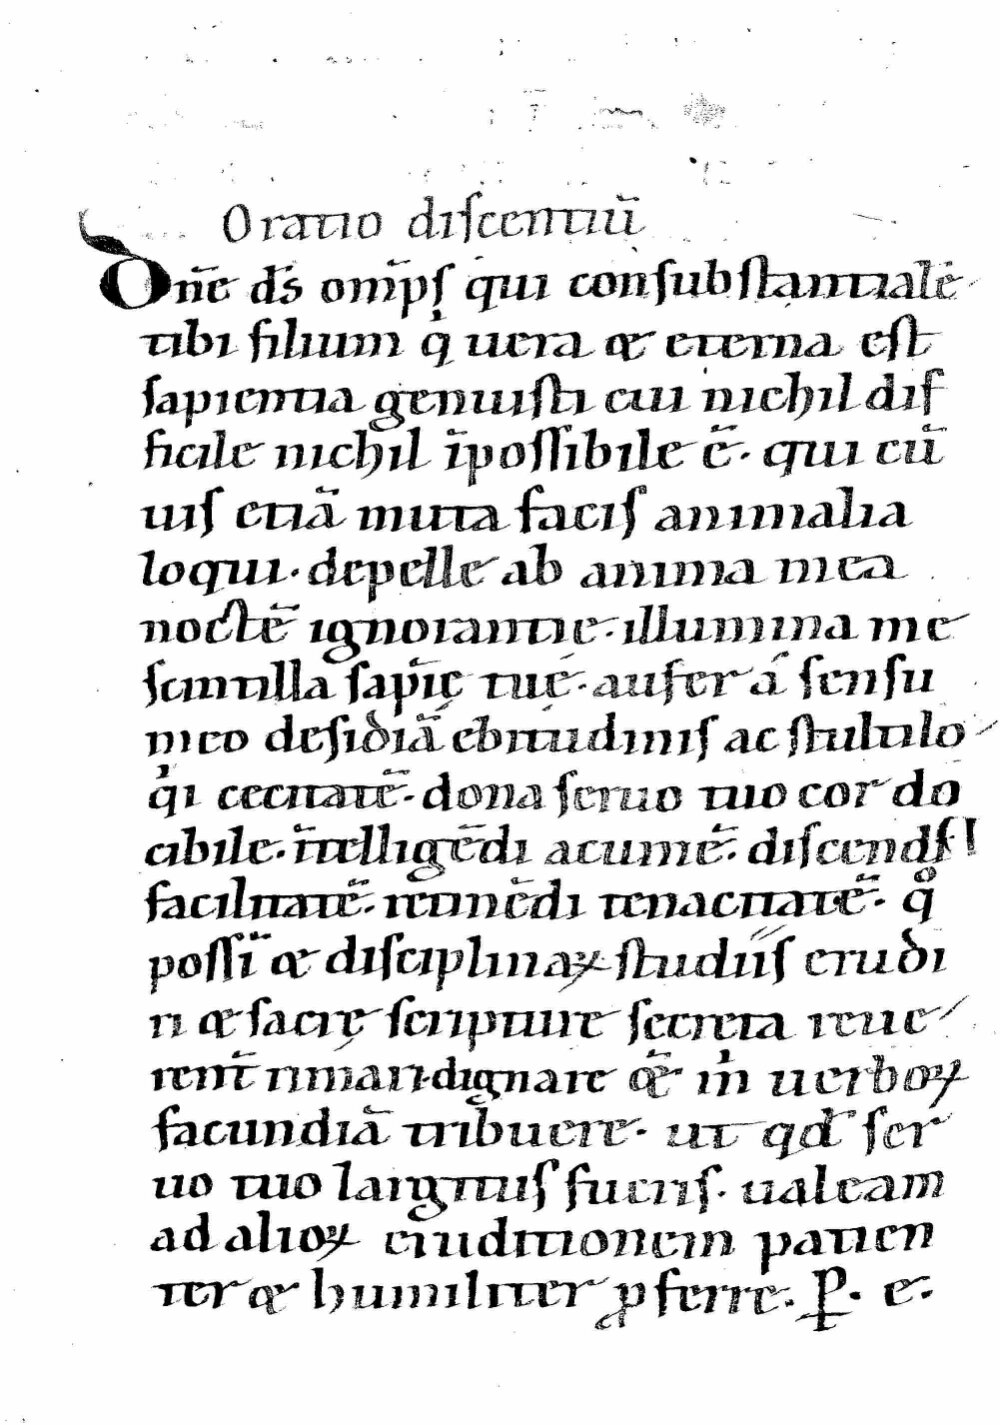 Oratio diſcentiū
Dn̄e d̄s om̄pſ qui conſubſtantialē
tibi filium q̇ uera & eterna eſt
ſapientia genuiſti cui nichil dif
ficile nichil īpoſſibile ē. qui cū
uiſ etiā muta faciſ animalia
loqui. depelle ab anima mea
noctē ignorantie. illumina me
ſcintilla ſapīę tuę. aufer a ſenſu
meo deſidiā ebitudiniſ ac ſtultilo
qi cecitatē. dona ſeruo tuo cor do
cibile. ītelligēdi acumē. diſcendi
facilitatē. retinēdi tenacitatē. qͦ
poſſī & diſciplinaꝝ ſtudiiſ erudi
ri & ſacrę ſcripture ſecreta reue
rent̄ rimari. dignare & m̍ uerboꝝ
facundiā tribuere. ut qd̄ ſer
uo tuo largituſ fueriſ. ualeam
ad alioꝝ eruditionem patien
ter & humiliter ꝓferre. P. e.